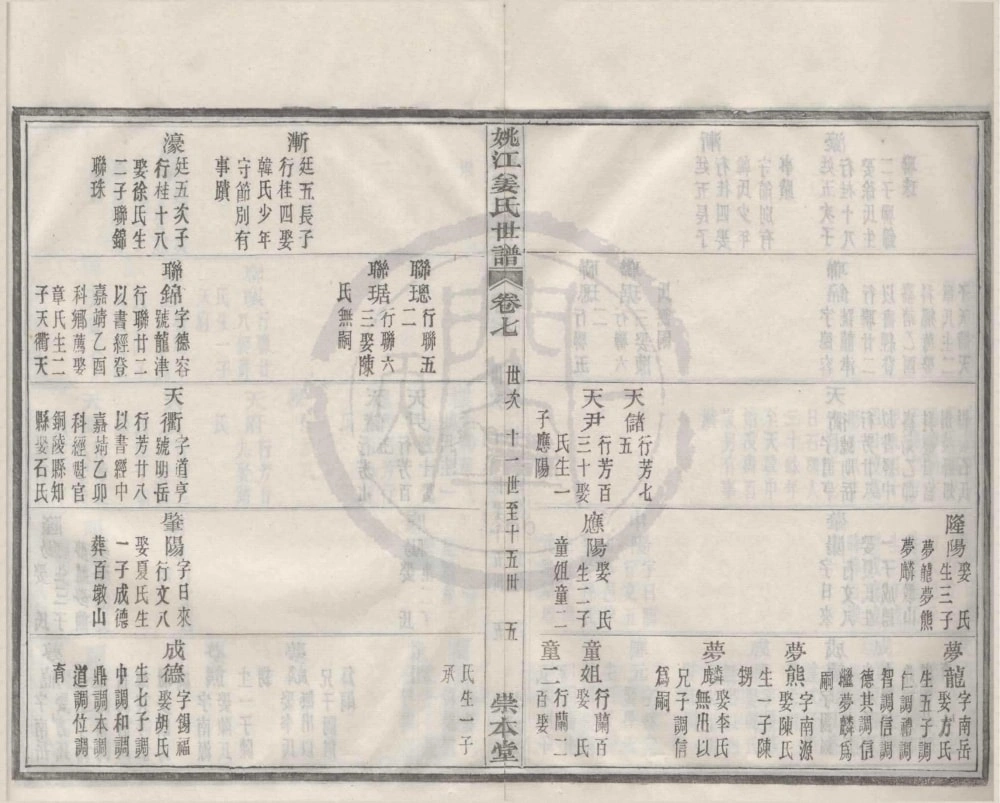 隆陽娶 氏
生三子
夢龍夢熊
夢麟
夢龍字南岳
娶方氏
生五子調
仁調禮調
智調信調
德其調信
繼夢麟爲
嗣
夢熊字南源
娶陳氏
生一子陳
甥
夢麟娶李氏
無出以
兄子調信
爲嗣
天儲行芳七
五
天尹行芳百
三十娶
氏生一
子應陽
應陽娶 氏
生二子
童姐童二
童姐行蘭百
娶 氏
童二行蘭二
百娶
姚江姜氏世譜
卷七
世次 十一世至十五世
五
崇本堂
氏生一子
承
漸廷五長子
行桂四娶
韓氏少年
守節別有
事蹟
濠廷五次子
行桂十八
娶徐氏生
二子聯錦
聯珠
聯璁行聯五
二
聯琚行聯六
三娶陳
氏無嗣
聯錦字德容
號龍津
行聯廿二
以書經登
嘉靖乙酉
科鄉薦娶
章氏生二
子天衢天
天衢字道亨
號明岳
行芳廿八
以書經中
嘉靖乙卯
科經魁官
銅陵縣知
縣娶石氏
肇陽字日來
行文八
娶夏氏生
一子成德
葬百墩山
成德字錫福
娶胡氏
生七子調
中調和調
鼎調本調
道調位調
育